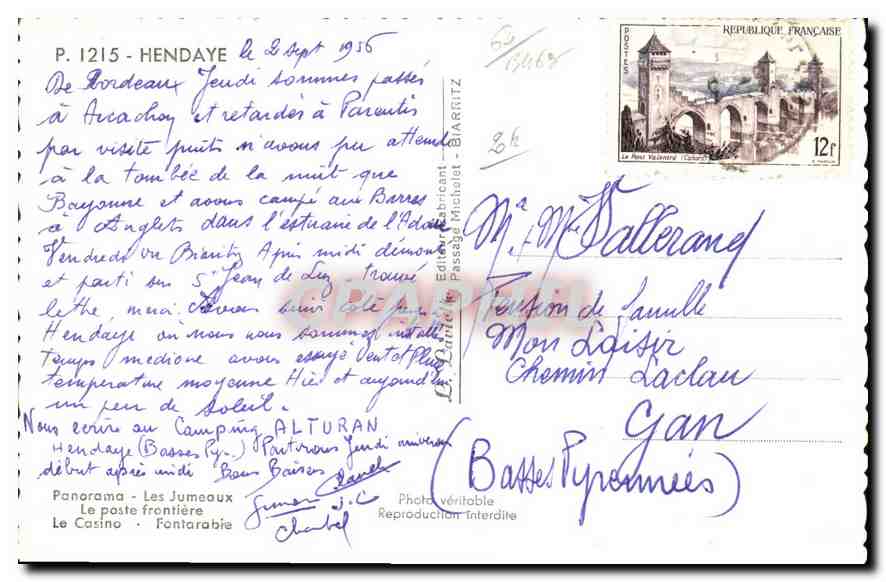 P. 1215 - HENDAYE le 2 sept 1956
De Bordeaux Jeudi sommes passés
à Arcachon et retardés à Parentis
par visite puits n'avons pu attendre
à la tombée de la nuit que
Bayonne et avons campé aux Barres
à Anglets dans l'estuaire de l'Adour
Vendredi vu Biarritz Après midi démonté
et parti sur St Jean de Luz trouvé
lettre, merci. Avons suivi côte jusqu'à
Hendaye où nous nous sommes installés
temps médiocre avons essuyé vent et pluie
température moyenne Hier et aujourd'hui
un peu de soleil.
Nous écrire au Camping ALTURAN
Hendaye (Basses Pyr..) Partirons Jeudi
début après midi Bons Baisers
Simon
Panorama - Les Jumeaux
Le poste frontière
Le Casino - Fontarabie
Photo véritable
Reproduction interdite
Editeur-Fabricant
Passage Michelet - BIARRITZ
REPUBLIQUE FRANÇAISE
POSTES
Le Pont Valentré (Cahors)
12F
M. & Mme Vallerand
Pension de famille
Mon Loisir
Chemin Laclau
Gan
(Basses Pyrennées)